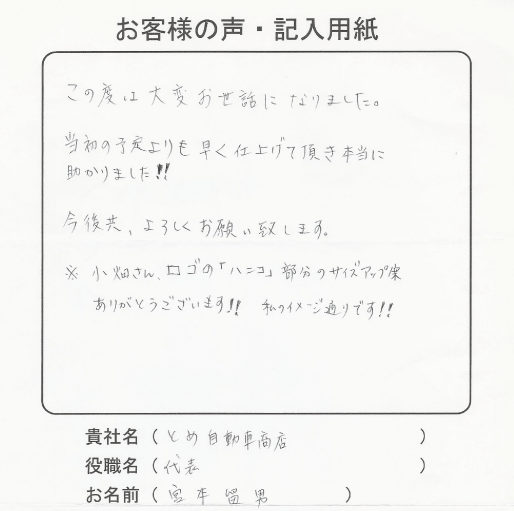 お客様の声・記入用紙
この度は大変お世話になりました。
当初の予定よりも早く仕上げて頂き本当に
助かりました!!
今後共、よろしくお願い致します。
※ 小畑さん、ロゴの「ハンコ」部分のサイズアップ案
ありがとうございます!! 私のイメージ通りです!!
貴社名（とめ自動車商店）
役職名（代表）
お名前（宮本留男）